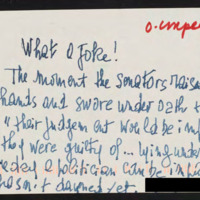 o-impe
What a Joke!
The moment the senators raise
hands and swore under oath t
"their judgement would be imp
they were guilty of... lying under
a politician can be imp
hasn't dawned yet.